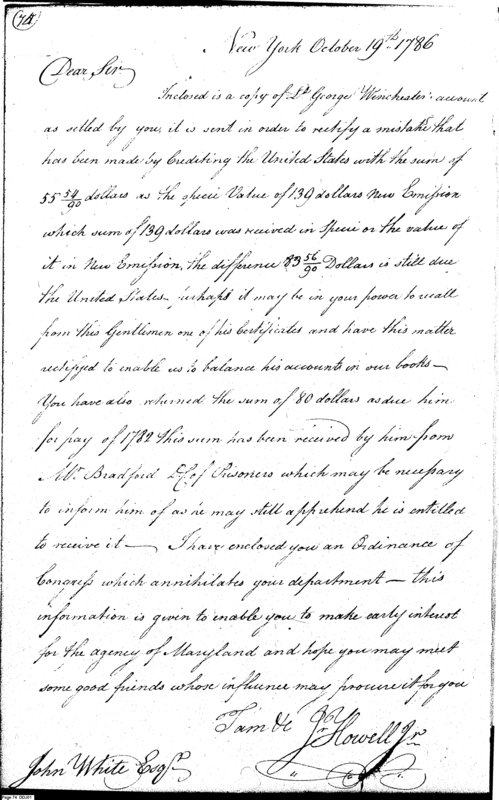 74
New York October 19th 1786
Dear Sir
Inclosed is a copy of Lt George Winchester's account
as settled by you, it is sent in order to rectify a mistake that
has been made by Crediting the United States with the sum of
55 54/90 dollars as the specie Value of 139 dollars New Emission
which sum of 139 dollars was received in Specie or the value of
it in New Emission, the difference 83 56/90 Dollars is still due
the United States perhaps it may be in your power to recall
from this Gentlemen one of his Certificates and have this matter
rectified to enable us to balance his accounts in our books—
You have also returned the sum of 80 dollars as due him
for pay of 1782 this sum has been received by him from
Mr. Bradford of Prisoners which may be necessary
to inform him of as he may still apprehend he is entitled
to receive it — I have enclosed you an Ordinance of
Congress which annihilates your department — this
information is given to enable you to make early interest
for the agency of Maryland and hope you may meet
some good friends whose influence may procure it for you
I am &c Howell Jr.
John White Esqr.